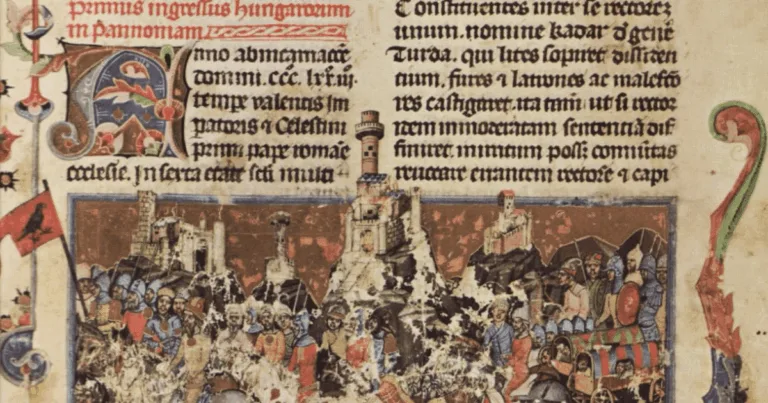 primus ingressus hungarorum
in pannoniam
Anno ab incarnacõe
domini. ccc. lxxiii.
tempe valentis im
patoris ⁊ Celestini
primi pape romane
ecclesie. In sexta etate sc̃li multi
Constituentes inter se rectorẽ
unum. nomine kadar d̕ gene
Turda. qui lites sopiret dissiden
cium. fures ⁊ latrones ac malefco
res castigaret. ita tam̃. ut si rector
idem inmoderatam sentenciã dif
finiret. in irritum posẜ comũitas
revocare errantem rectorẽ ⁊ capi